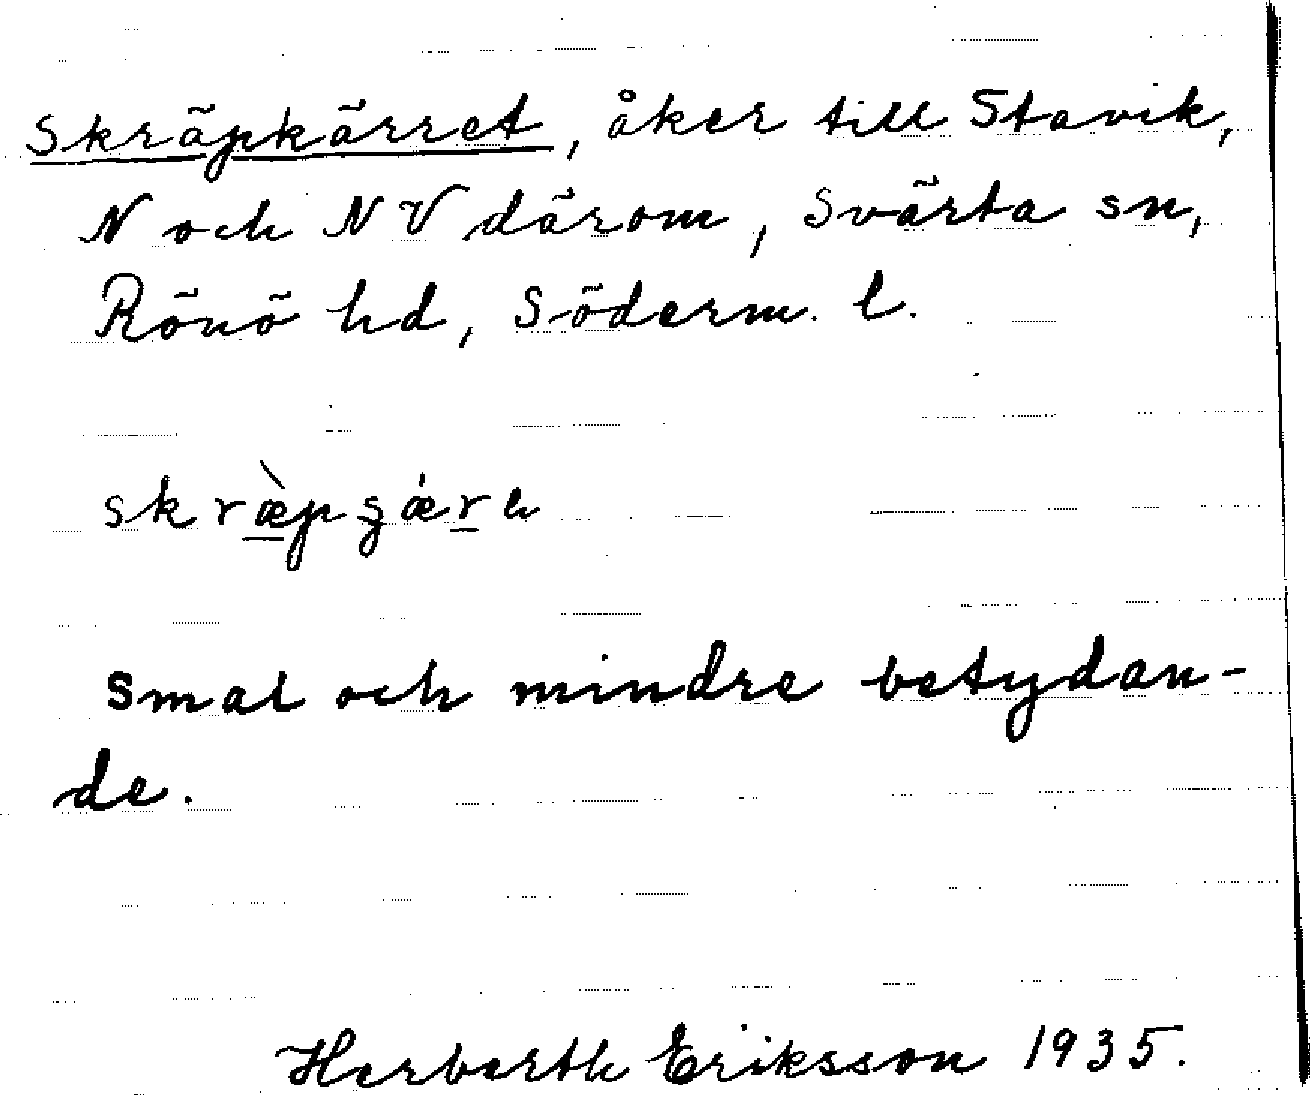 Skräpkärret, åker till Stavik,
N och NV därom, Svärta sn,
Rönö hd, Söderm. l.
Smal och mindre betydan-
de.
Herberth Eriksson 1935.